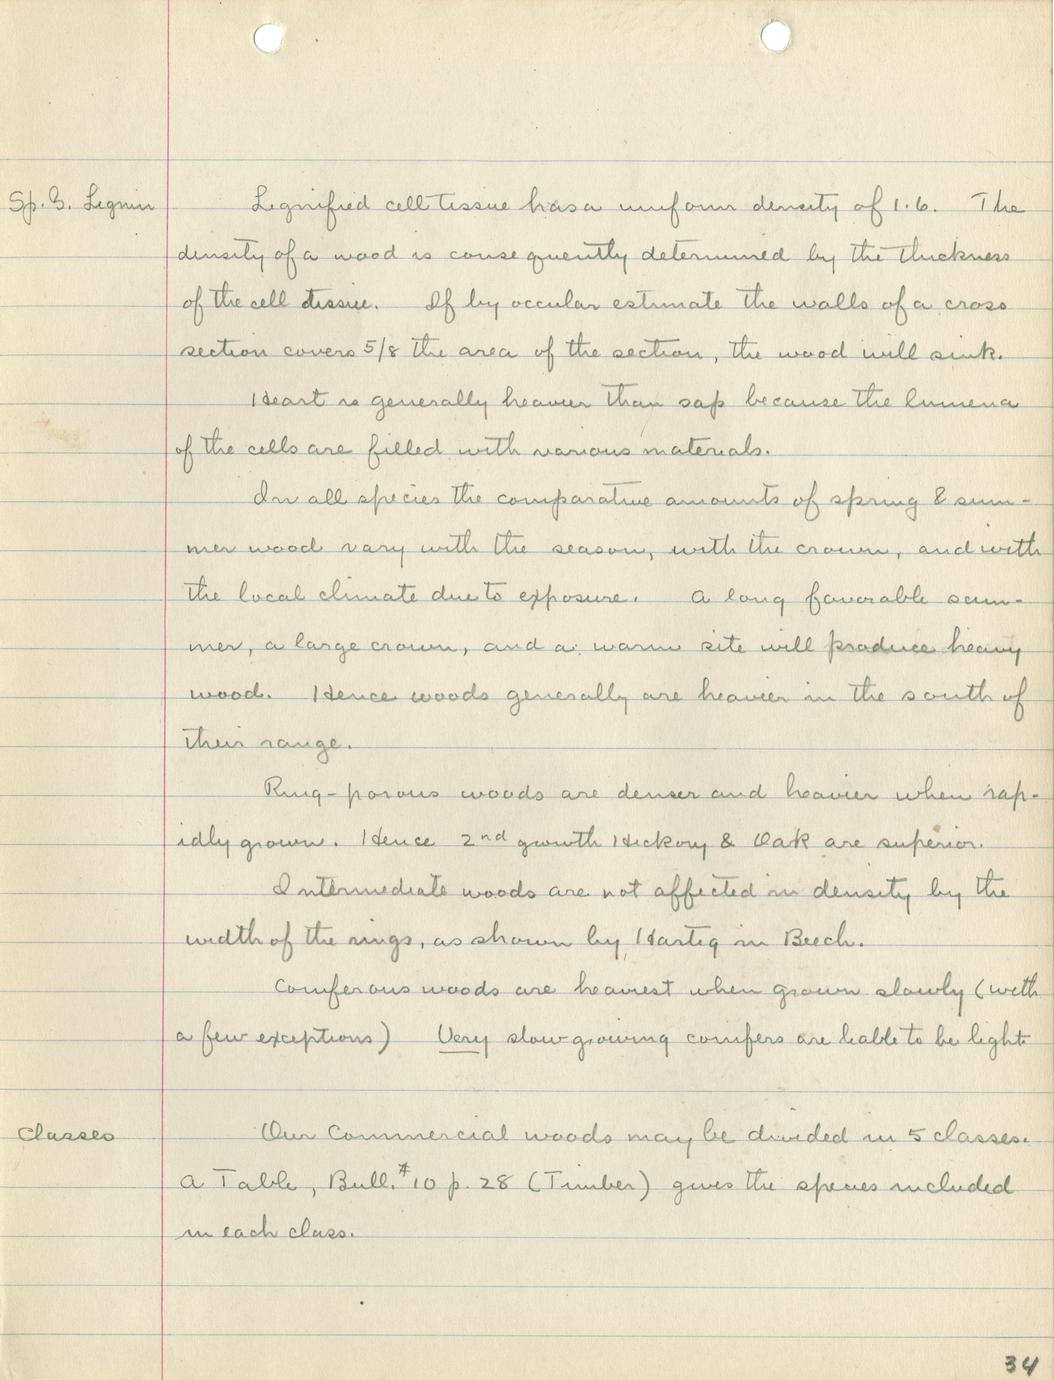 Sp. G. Lignin
Lignified cell tissue has a uniform density of 1.6. The
density of a wood is consequently determined by the thickness
of the cell tissue. If by occular estimate the walls of a cross
section covers 5/8 the area of the section, the wood will sink.
Heart is generally heavier than sap because the lumena
of the cells are filled with various materials.
In all species the comparative amounts of spring & sum-
mer wood vary with the season, with the crown, and with
the local climate due to exposure. A long favorable sum-
mer, a large crown, and a warm site will produce heavy
wood. Hence woods generally are heavier in the south of
their range.
Ring-porous woods are denser and heavier when rap-
idly grown. Hence 2nd growth Hickory & Oak are superior.
Intermediate woods are not affected in density by the
width of the rings, as shown by Hartig in Beech.
Coniferous woods are heaviest when grown slowly (with
a few exceptions) Very slow growing conifers are liable to be light
Classes
Our Commercial woods may be divided in 5 classes.
A Table, Bull. #10 p. 28 (Timber) gives the species included
in each class.
34